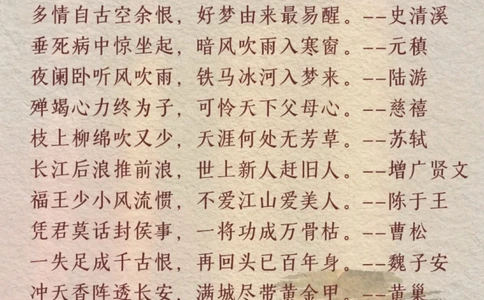 多情自古空余恨，好梦由来最易醒。--史清溪
垂死病中惊坐起，暗风吹雨入寒窗。--元稹
夜阑卧听风吹雨，铁马冰河入梦来。--陆游
殚竭心力终为子，可怜天下父母心。--慈禧
枝上柳绵吹又少，天涯何处无芳草。--苏轼
长江后浪推前浪，世上新人赶旧人。--增广贤文
福王少小风流惯，不爱江山爱美人。--陈于王
凭君莫话封侯事，一将功成万骨枯。--曹松
一失足成千古恨，再回头已百年身。--魏子安
冲天香阵透长安，满城尽带黄金甲。--黄巢